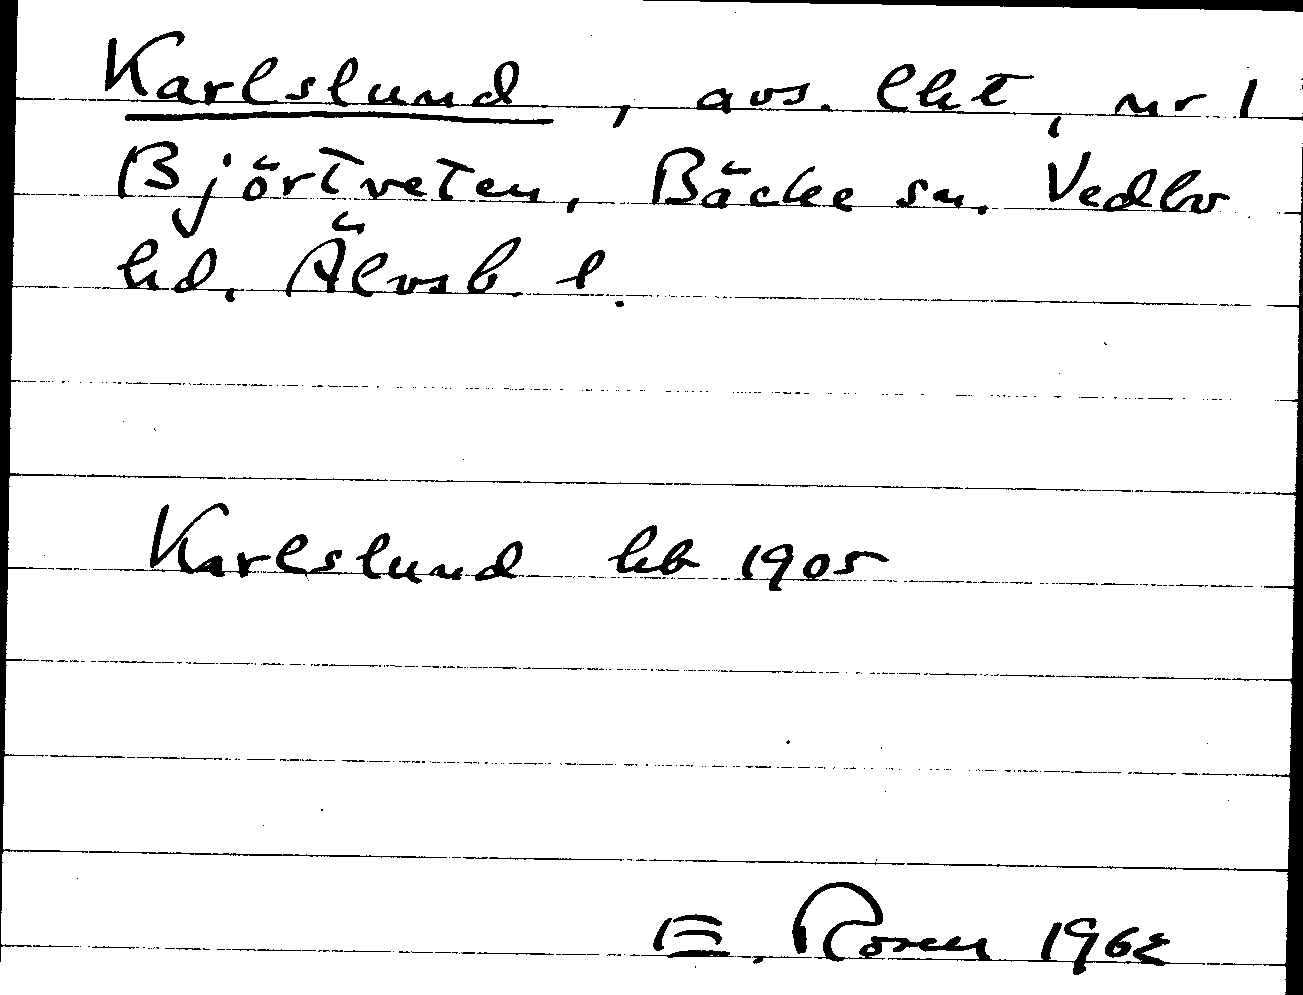 Karlslund, avs. lht, nr 1
Björtveten, Bäcke sn. Vedbo
hd. Älvsb. l.
Karlslund hb 1905
E. Rosen 1962